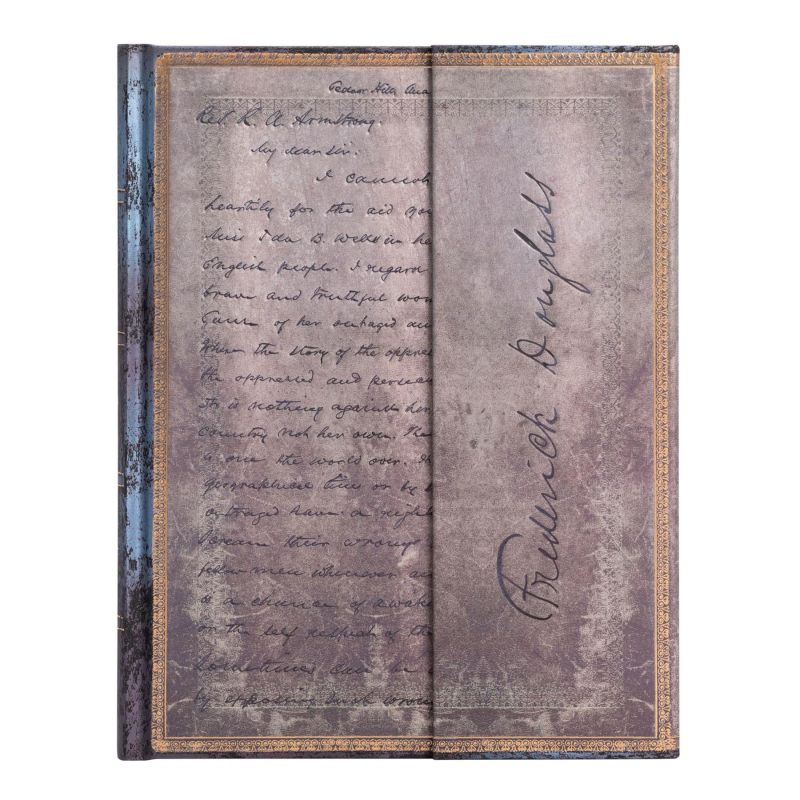 Cedar Hill, Ana
Rev. R. A. Armstrong.
My dear Sir:
I cannot
heartily for the aid you
Miss Ida B. Wells in he
English people. I regard
brave and truthful wom
Cause of her outraged an
Where the story of the oppre
the oppressed and persecu
It is nothing against her
country not her own. The
is one the world over.
geographical lines or by
outraged have a right
because their wrongs
fellow men wherever
is a chance of
on the self respect of the
sometimes can be
by opposing such wron
Frederick Douglass